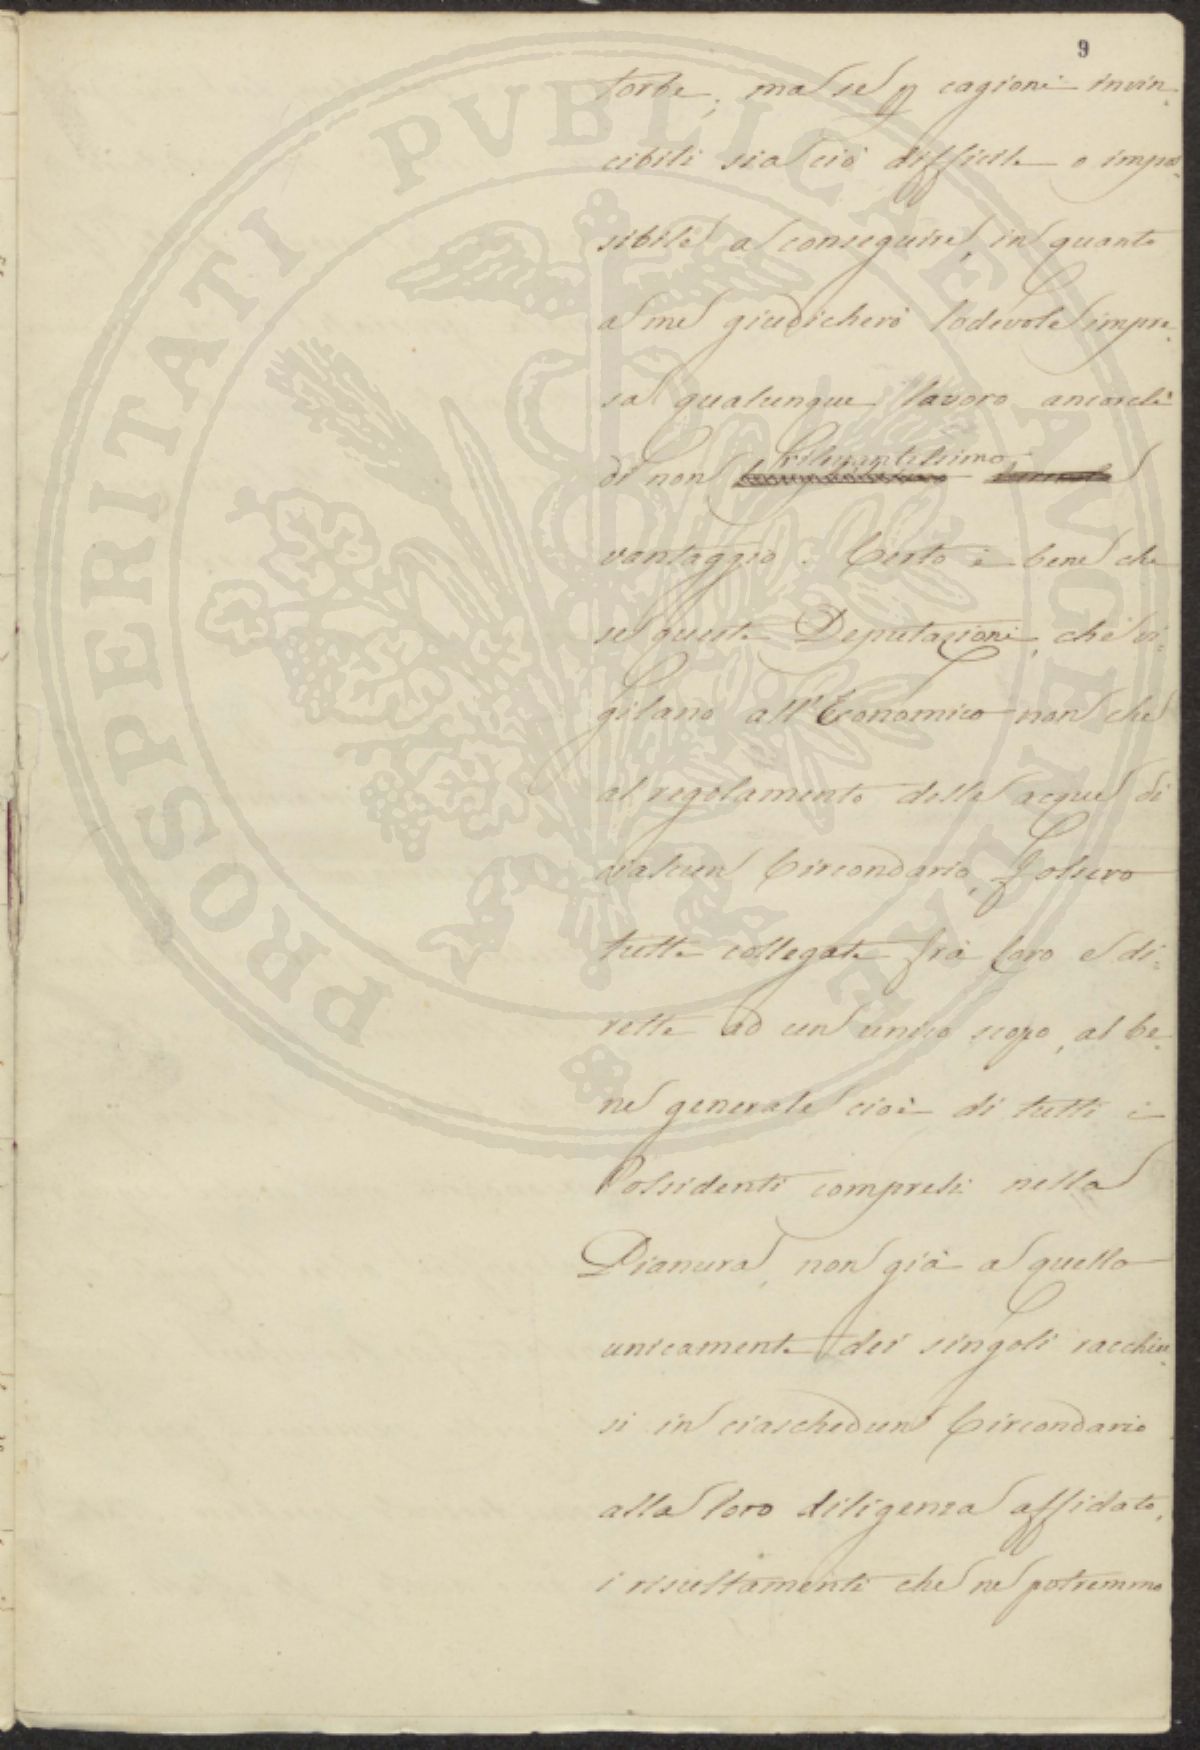 9
torbe; ma se p cagioni invin-
cibili sia ciò difficile o impos-
sibile a conseguire, in quanto
a me giudicherò lodevole impre-
sa qualunque lavoro ancorchè
di non rilevantissimo
vantaggio. Certo è bene che
se queste Deputazioni, che vi-
gilano all'Economico non che
al regolamento delle acque di
cialcun Circondario, fossero
tutte collegate frà loro e di-
rette ad un unico scopo, al be-
ne generale cioè di tutti i
Possidenti compresi nella
Pianura, non già a quello
unicamente dei singoli racchiu-
si in ciaschedun Circondario
alla loro diligenza affidato,
i risultamenti che ne potremmo
PROSPERITATI PVBLICAE AVGENDAE